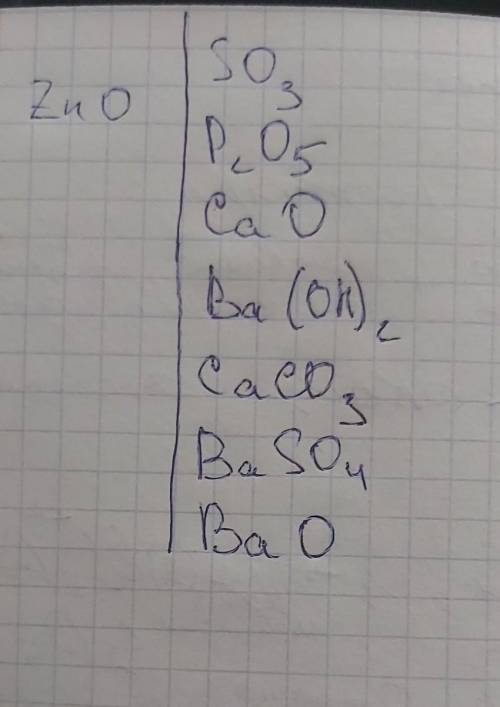 ZnO
SO₃
P₂O₅
CaO
Ba(OH)₂
CaCO₃
BaSO₄
BaO